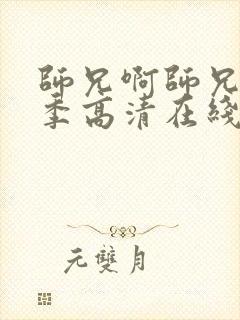 師兄啊師兄
季高清在綫
元雙月